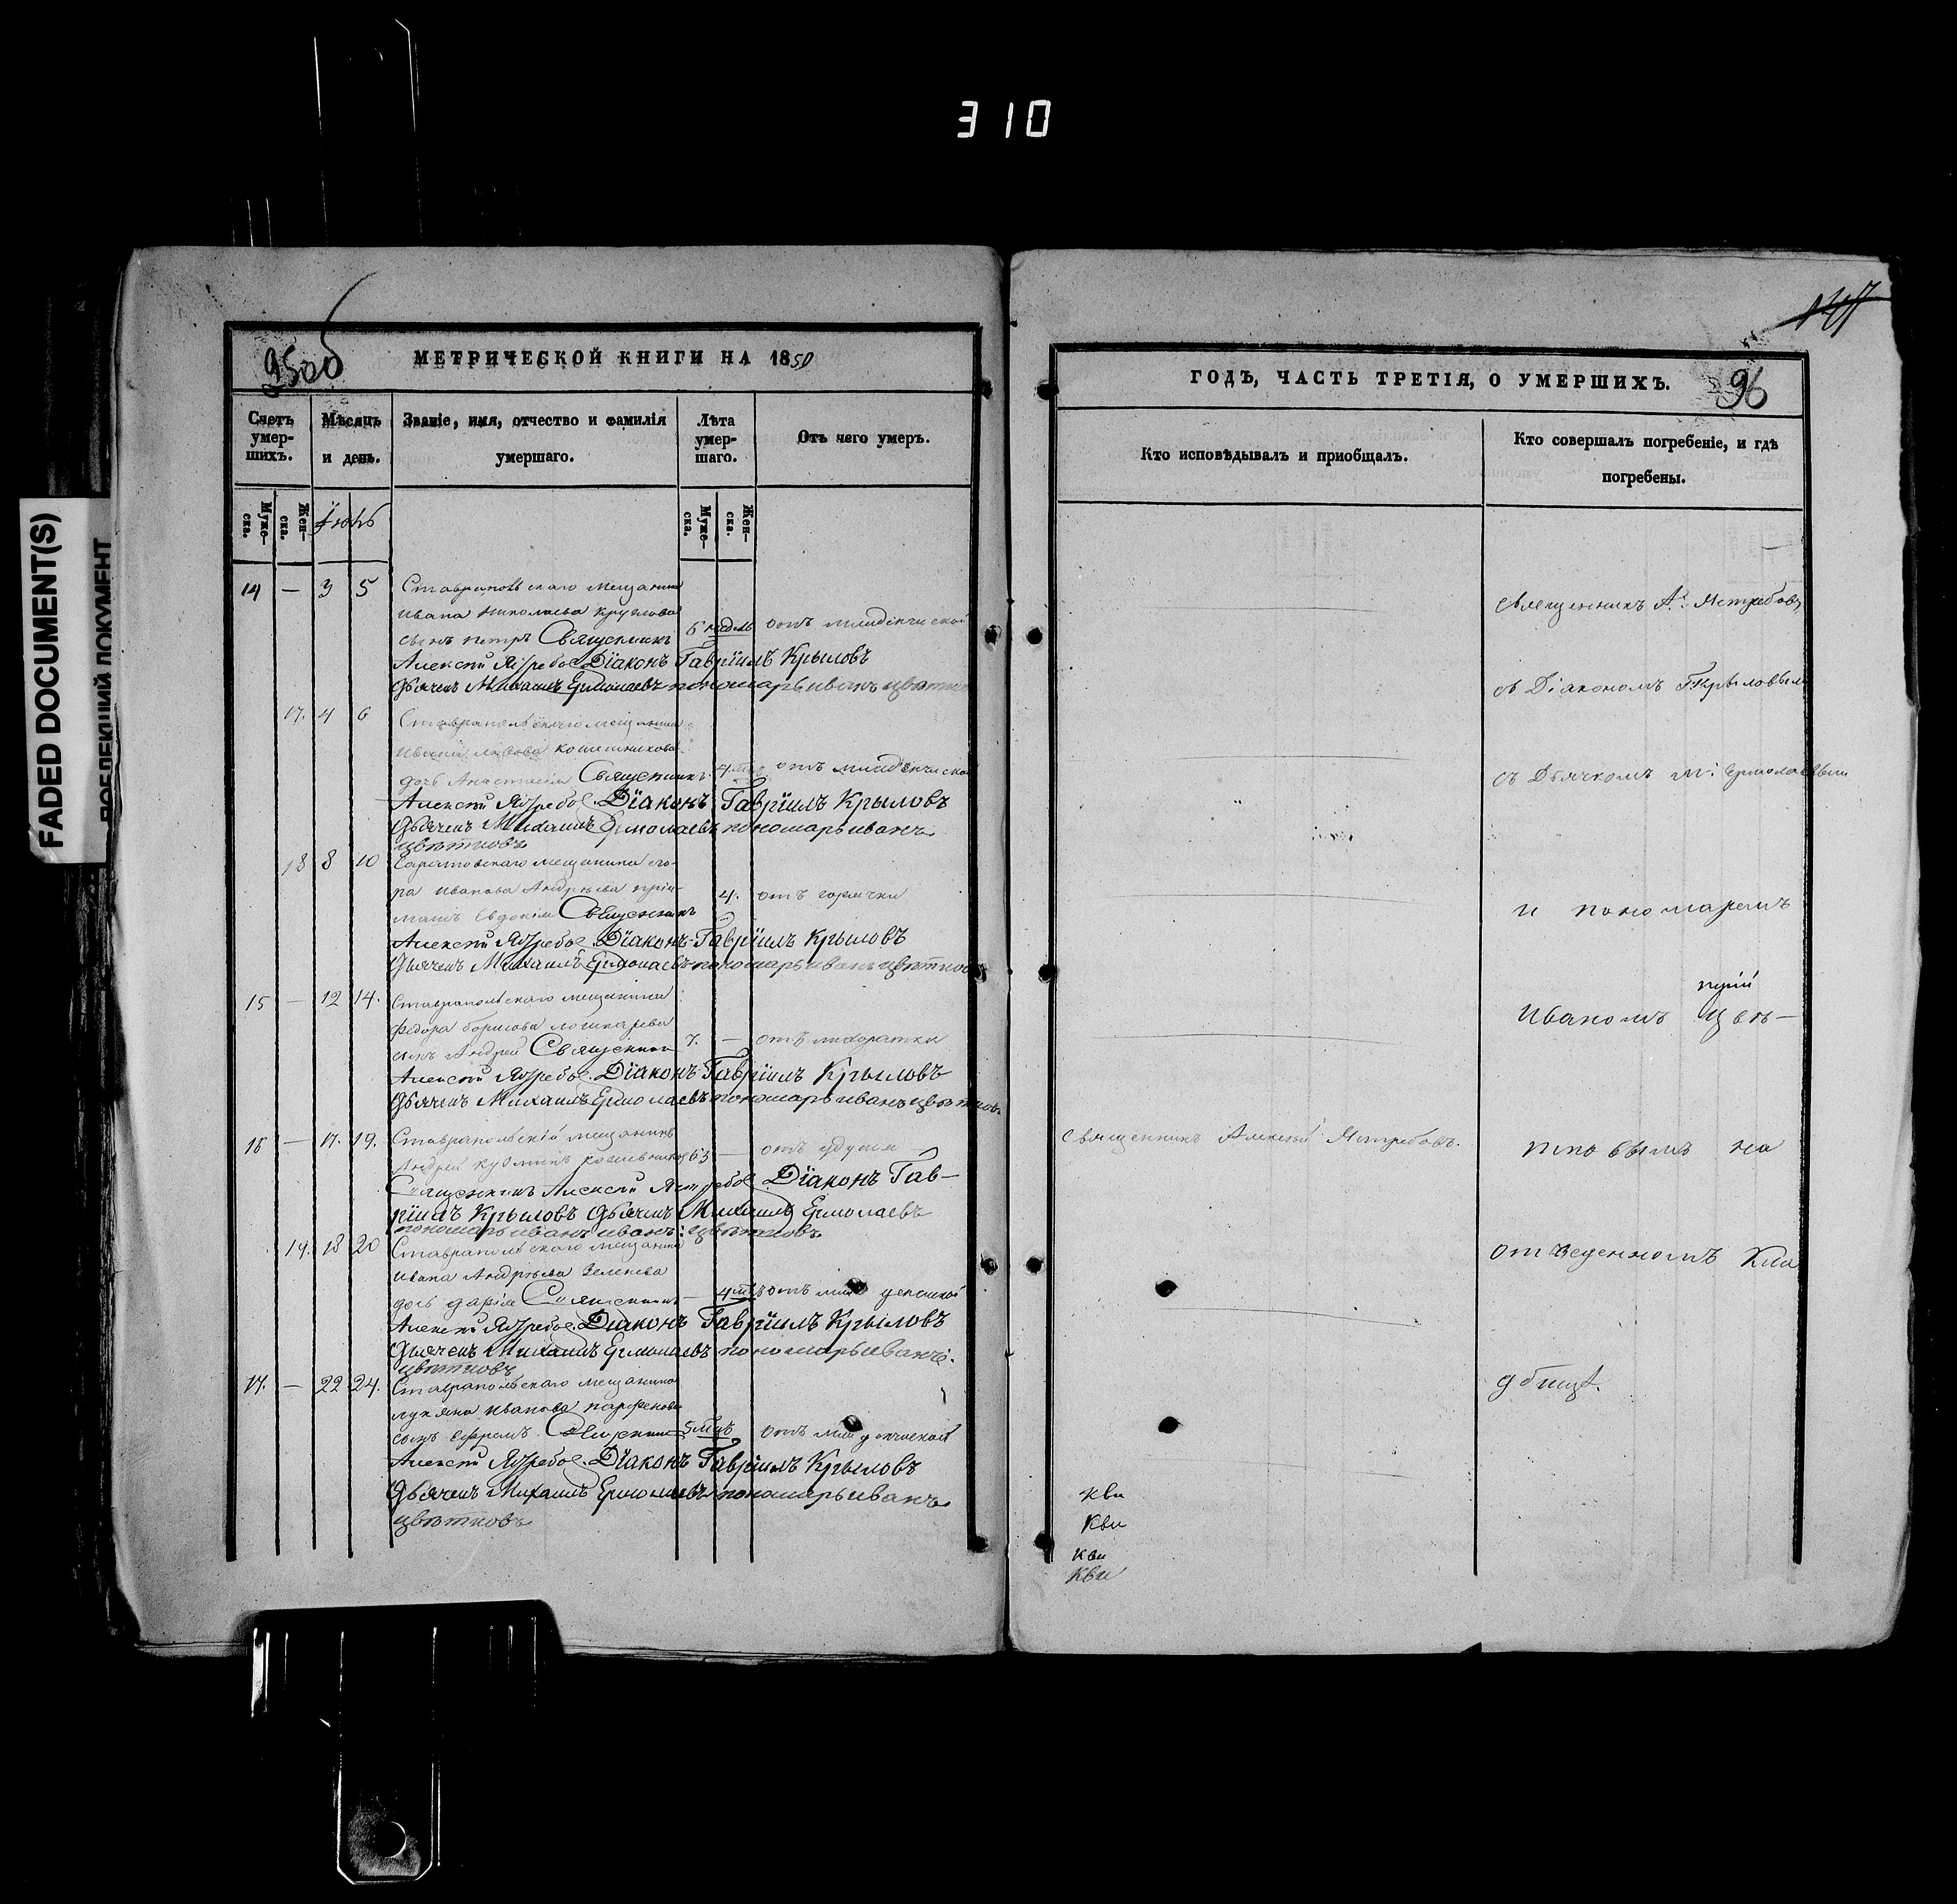 310
FADED DOCUMENT(S)
95 об
МЕТРИЧЕСКОЙ КНИГИ НА 1859
Счетъ умер-шихъ.
Мѣсяцъ и день.
Званіе, имя, отчество и фамилія умершаго.
Лѣта умер-шаго.
Отъ чего умеръ.
Муже-ска.
Жен-ска.
Муже-ска.
Жен-ска.
14 — 3 5 Ставропольскаго мещанина
Ивана Николаева Круглова
сынъ петръ Священникъ 6 недель отъ младенческой
Алексѣй Ястребов Діаконъ Гавріилъ Крыловъ
Дьячекъ Михаилъ Ермолаевъ пономарь иванъ цвѣтков
17. 4 6 Ставропольскаго мещанина
дочь Анастасія Священникъ 4 отъ младенческой
Алексѣй Ястребов Діаконъ Гавріилъ Крыловъ
Дьячекъ Михаилъ Ермолаевъ пономарь иванъ
цвѣтковъ
18 8 10 Саратовскаго мещанина его-
ра иванова Андреева прiи-
Евдокія Священникъ 4. отъ горячки
Алексѣй Ястребов Діаконъ Гавріилъ Крыловъ
Дьячекъ Михаилъ Ермолаевъ пономарь иванъ цвѣтков
15 — 12 14. Ставропольскаго мещанина
федора борисова лошкарева
сынъ Андрей Священник 7. — отъ лихоратки
Алексѣй Ястребов Діаконъ Гавріилъ Крыловъ
Дьячекъ Михаилъ Ермолаевъ пономарь иванъ цвѣтков
16 — 17. 19. Ставропольскій мещанинъ
Андрей 63 — отъ удушья
Священникъ Алексѣй Ястребов Діаконъ Гав-
ріилъ Крыловъ Дьячекъ Михаилъ Ермолаевъ
пономарь иванъ иванъ: цвѣтковъ
19. 18 20 Ставропольскаго мещанина
ивана Андреева Зеленева
дочь дарія Священникъ — 4 отъ младенческой
Алексѣй Ястребов Діаконъ Гавріилъ Крыловъ
Дьячекъ Михаилъ Ермолаевъ пономарь иванъ
цвѣтковъ
17. — 22 24. Ставропольскаго мещанина
лукяна иванова парфенова
сынъ ефремъ Священник 5 мцъ отъ младенческой
Алексѣй Ястребов Діаконъ Гавріилъ Крыловъ
Дьячекъ Михаилъ Ермолаевъ пономарь иванъ
цвѣтковъ
96
ГОДЪ, ЧАСТЬ ТРЕТІЯ, О УМЕРШИХЪ.
Кто исповѣдывалъ и пріобщалъ.
Кто совершалъ погребеніе, и гдѣ погребены.
священникъ А: Ястребовъ
съ Діакономъ Г: Крыловымъ
съ Дьячкомъ М: Ермолаевым
и пономаремъ
Иваномъ Цвѣ-
священникъ Алексѣй Ястребовъ.
тковымъ на
отведенномъ Кла
дбищѣ.
кви
кви
кви
кви